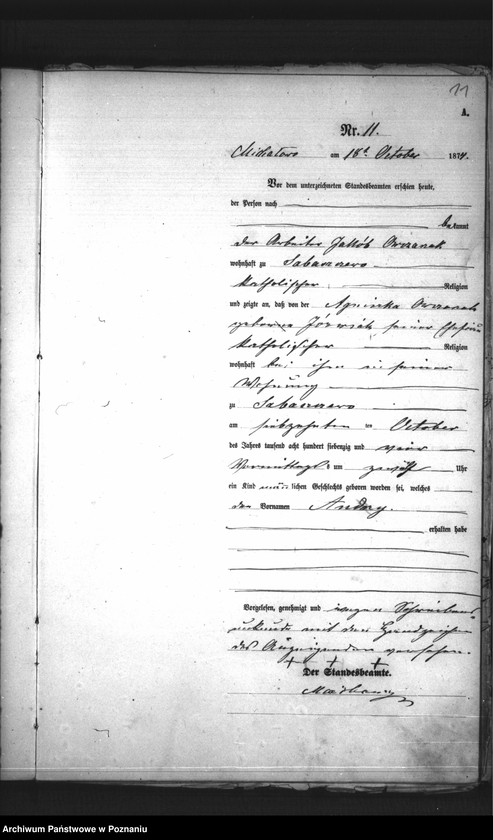 11
A.
Nr. 11.
am 18t October 1874.
Vor dem unterzeichneten Standesbeamten erschien heute,
der Person nach
bekannt
der Arbeiter Jakób Owczarek
wohnhaft zu
katholischer Religion
und zeigte an, daß von der Agnieszka Owczarek
geborne Józwiak, seiner Ehefrau
katholischer Religion
wohnhaft bei ihm in seiner
Wohnung
zu
am siebzehnten ten October
des Jahres tausend acht hundert siebenzig und vier
Vormittags um zwölf Uhr
ein Kind männlichen Geschlechts geboren worden sei, welches
den Vornamen
erhalten habe
Vorgelesen, genehmigt und wegen Schreibens
unkunde mit den Handzeichen
des Anzeigenden versehen.
+ + +
Der Standesbeamte.
Archiwum Państwowe w Poznaniu